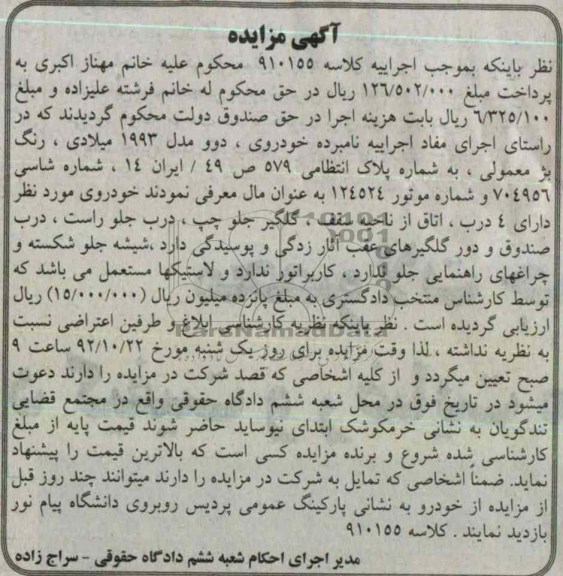 آگهی مزایده
نظر باینکه بموجب اجراییه کلاسه ۹۱۰۱۵۵ محکوم علیه خانم مهناز اکبری به
پرداخت مبلغ ۱۲۶/۵۰۲/۰۰۰ ریال در حق محکوم له خانم فرشته علیزاده و مبلغ
۶/۳۲۵/۱۰۰ ریال بابت هزینه اجرا در حق صندوق دولت محکوم گردیدند که در
راستای اجرای مفاد اجراییه نامبرده خودروی ، دوو مدل ۱۹۹۳ میلادی ، رنگ
بژ معمولی ، به شماره پلاک انتظامی ۵۷۹ ص ۴۹ / ایران ۱۴ ، شماره شاسی
۷۰۴۹۵۶ و شماره موتور ۱۲۴۵۲۴ به عنوان مال معرفی نمودند خودروی مورد نظر
دارای ۴ درب ، اتاق از ناحیه سقف ، گلگیر جلو چپ ، درب جلو راست ، درب
صندوق و دور گلگیرهای عقب آثار زدگی و پوسیدگی دارد ،شیشه جلو شکسته و
چراغهای راهنمایی جلو ندارد ، کاربراتور ندارد و لاستیکها مستعمل می باشد که
توسط کارشناس منتخب دادگستری به مبلغ پانزده میلیون ریال (۱۵/۰۰۰/۰۰۰) ریال
ارزیابی گردیده است . نظر باینکه نظریه کارشناسی ابلاغ و طرفین اعتراضی نسبت
به نظریه نداشته ، لذا وقت مزایده برای روز یک شنبه مورخ ۹۲/۱۰/۲۲ ساعت ۹
صبح تعیین میگردد و از کلیه اشخاصی که قصد شرکت در مزایده را دارند دعوت
میشود در تاریخ فوق در محل شعبه ششم دادگاه حقوقی واقع در مجتمع قضایی
تندگویان به نشانی خرمکوشک ابتدای نیوساید حاضر شوند قیمت پایه از مبلغ
کارشناسی شده شروع و برنده مزایده کسی است که بالاترین قیمت را پیشنهاد
نماید. ضمناً اشخاصی که تمایل به شرکت در مزایده را دارند میتوانند چند روز قبل
از مزایده از خودرو به نشانی پارکینگ عمومی پردیس روبروی دانشگاه پیام نور
بازدید نمایند . کلاسه ۹۱۰۱۵۵
مدیر اجرای احکام شعبه ششم دادگاه حقوقی - سراج زاده